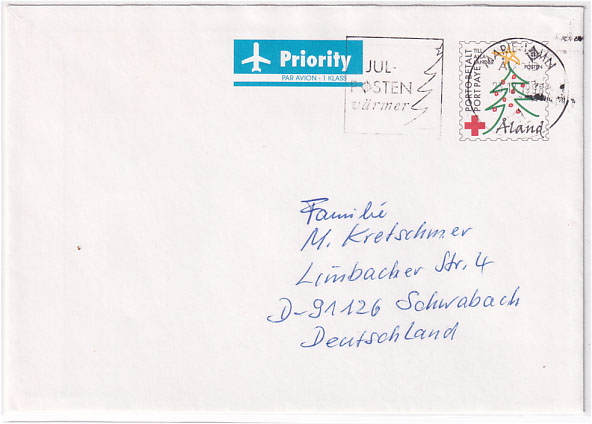 Priority
PAR AVION - 1 KLASS
JUL-
POSTEN
värmer
PORTO BETALT
PORT PAYÉ
TILL
POSTEN
Åland
Familie
M. Kretschmer
Limbacher Str. 4
D-91126 Schwabach
Deutschland